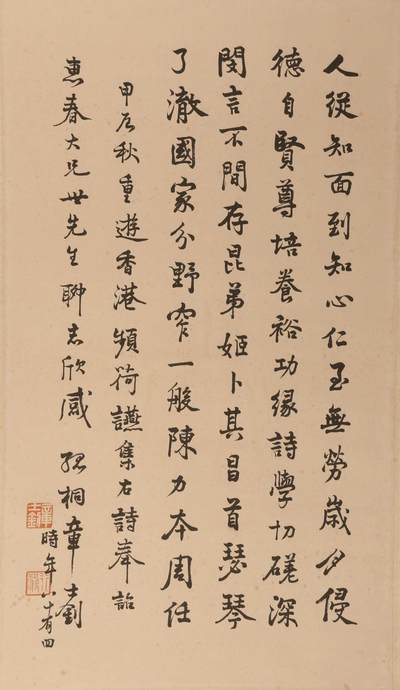 人從知面到知心仁至無勞歲夕侵
德自賢尊培養裕功緣詩學切磋深
閔言不間存昆弟姬卜其昌首瑟琴
了澈國家分野窄一般陳力本周任
甲辰秋重遊香港頻荷讌集右詩奉詒
惠春大兄世先生聊志欣感 孤桐章士釗
時年八十有四